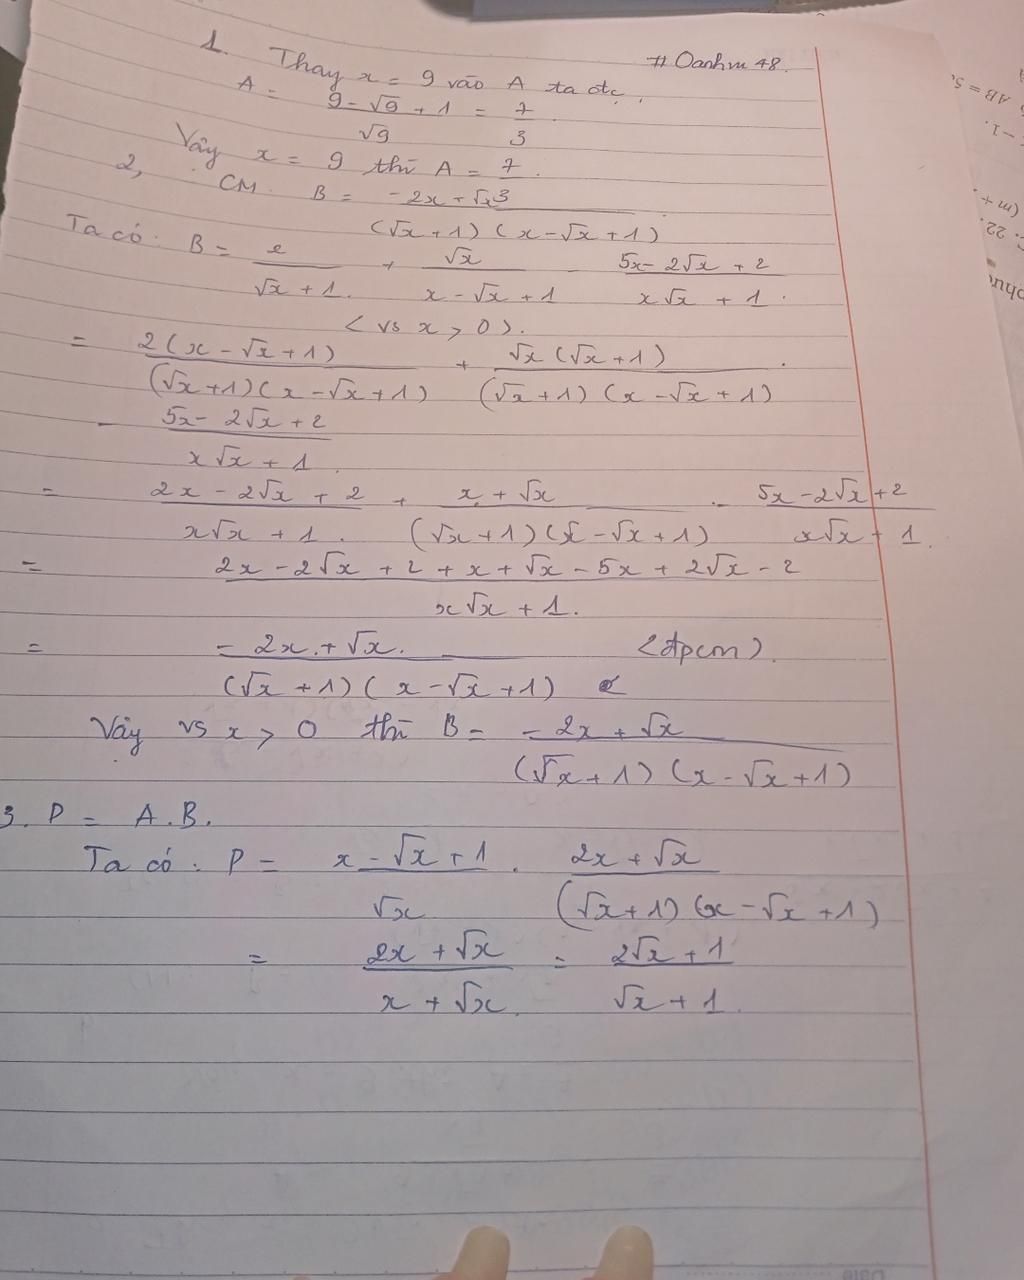 # Oanhm 48.
1. Thay x = 9 vào A ta đc,
A = (9 - √9 + 1)/√9 = 7/3
Vậy x = 9 thì A = 7/3.
2, CM B = (-2x + √x)/((√x + 1)(x - √x + 1))
Ta có: B = 2/(√x + 1) + √x/(x - √x + 1) - (5x - 2√x + 2)/(x√x + 1).
< vs x > 0 ).
= 2(x - √x + 1)/((√x + 1)(x - √x + 1)) + √x(√x + 1)/((√x + 1)(x - √x + 1))
- (5x - 2√x + 2)/(x√x + 1)
= (2x - 2√x + 2)/(x√x + 1) + (x + √x)/((√x + 1)(x - √x + 1)) - (5x - 2√x + 2)/(x√x + 1).
= (2x - 2√x + 2 + x + √x - 5x + 2√x - 2)/(x√x + 1).
= (-2x + √x)/((√x + 1)(x - √x + 1)) <đpcm).
Vậy vs x > 0 thì B = (-2x + √x)/((√x + 1)(x - √x + 1))
3. P = A.B.
Ta có: P = (x - √x + 1)/√x . (2x + √x)/((√x + 1)(x - √x + 1))
= (2x + √x)/(x + √x) = (2√x + 1)/(√x + 1).
AB = 5
-1.
(m +
22.